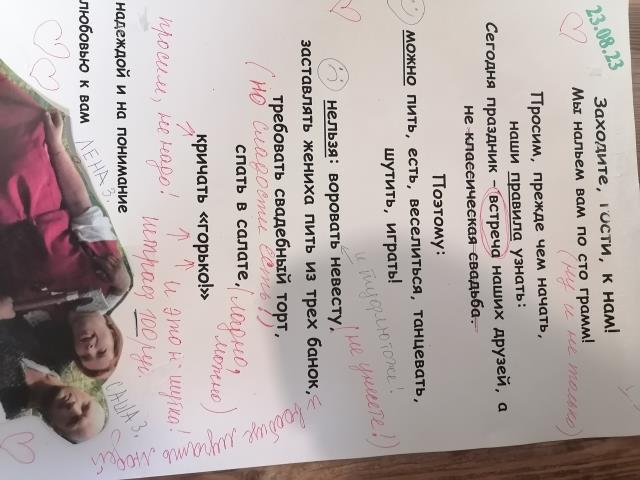 23.08.23
Заходите, гости, к нам!
Мы нальем вам по сто грамм!
(ну и не только)
Просим, прежде чем начать,
наши правила узнать:
Сегодня праздник – встреча наших друзей, а
не классическая свадьба.
Поэтому:
можно пить, есть, веселиться, танцевать,
шутить, играть!
и туфлю тоже! (не умеете!)
нельзя: воровать невесту,
заставлять жениха пить из трех банок,
требовать свадебный торт,
(но сладости есть!)
спать в салате, (ладно, можно)
кричать «горько!»
вообще мучать людей
просим, не надо! и это не шутка!
штраф 100 ру
надеждой и на понимание
любовью к вам
ЛЕНА З.
САША З.